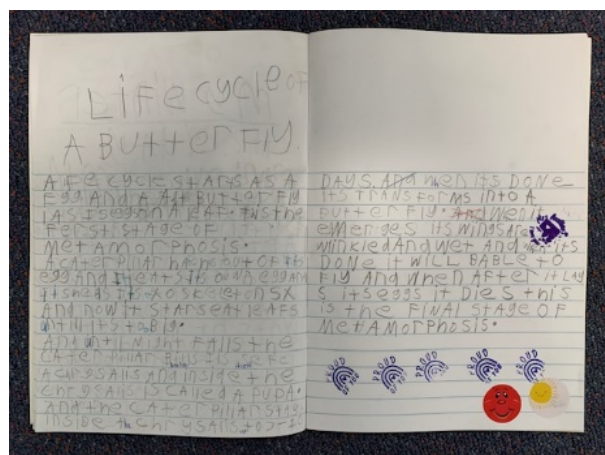 Life cycle OF
A Butterfly.
A LiFe cycle starts AS A
Egg And A Butter Fly
LAYS eggs on A leAF. this the
Ferst stage of
MetAMorphosis.
A cAter Pillar out of its
egg And it eAts its own egg And
it sheds its
And now it starts eat leAFs
until its to Big.
And until Night FAlls the
CAterPillAr
A chrysalis And inside the
chrysalis is CAlled A PUPA.
And the CAterPillAr stays
inside the chrysalis
DAYS. And wen its DONE
its TRANSForms into A
Butter Fly. And wen it
eMerges its wings Are
winkled And wet And its
DONE it WILL BABLE tO
FlY And wHeN AFter it LAY
S its eggs it DieS this
is the FINAL StAGe OF
MetAMorphosis.
PROUD OF YOU
PROUD OF YOU
PROUD OF YOU
PROUD OF YOU
PROUD OF YOU